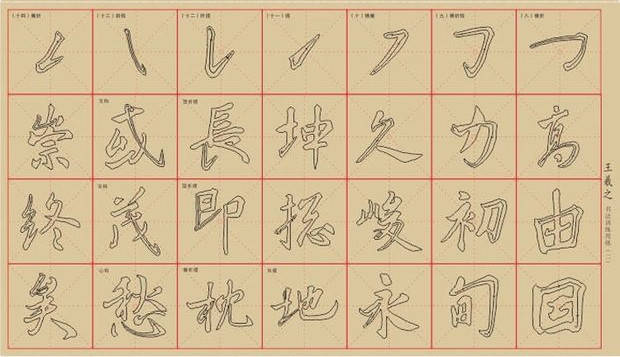 王羲之
(八)横折
高
由
(九)横折钩
力
初
旬
(十)横撇
久
峻
永
(十一)提
坤
地
長
即
枕
(十三)斜钩
或
茂
愁
(十四)撇折
崇
終
矣